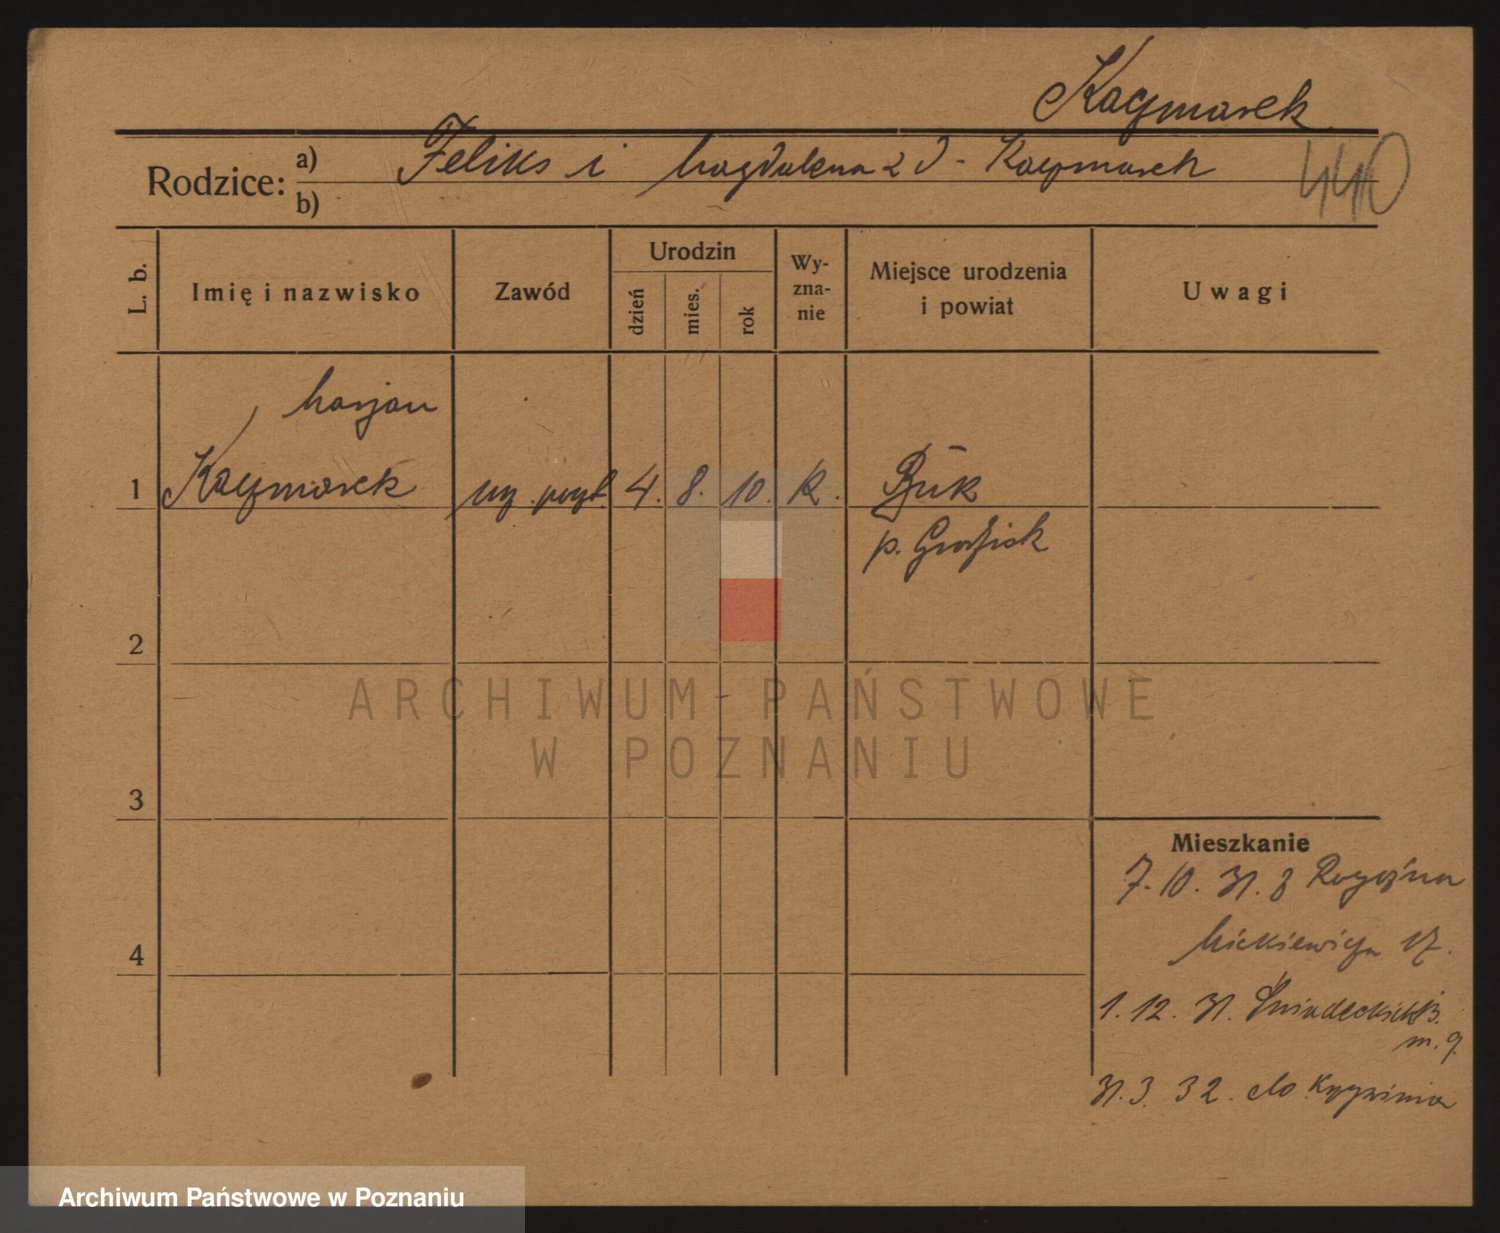 Kaczmarek
Rodzice: a) Feliks i Magdalena z d. Kaczmarek
b)
440
L. b.
Imię i nazwisko
Zawód
Urodzin
dzień
mies.
rok
Wy-
zna-
nie
Miejsce urodzenia
i powiat
Uwagi
Marjan
1 Kaczmarek 4. 8. 10. k. Buk
p. Grodzisk
2
3
4
Mieszkanie
7. 10. 31. z Rogoźna
Mickiewicza 17.
1. 12. 31. Śniadeckich
m. 9.
31. 3. 32. do
ARCHIWUM PAŃSTWOWE
W POZNANIU
Archiwum Państwowe w Poznaniu